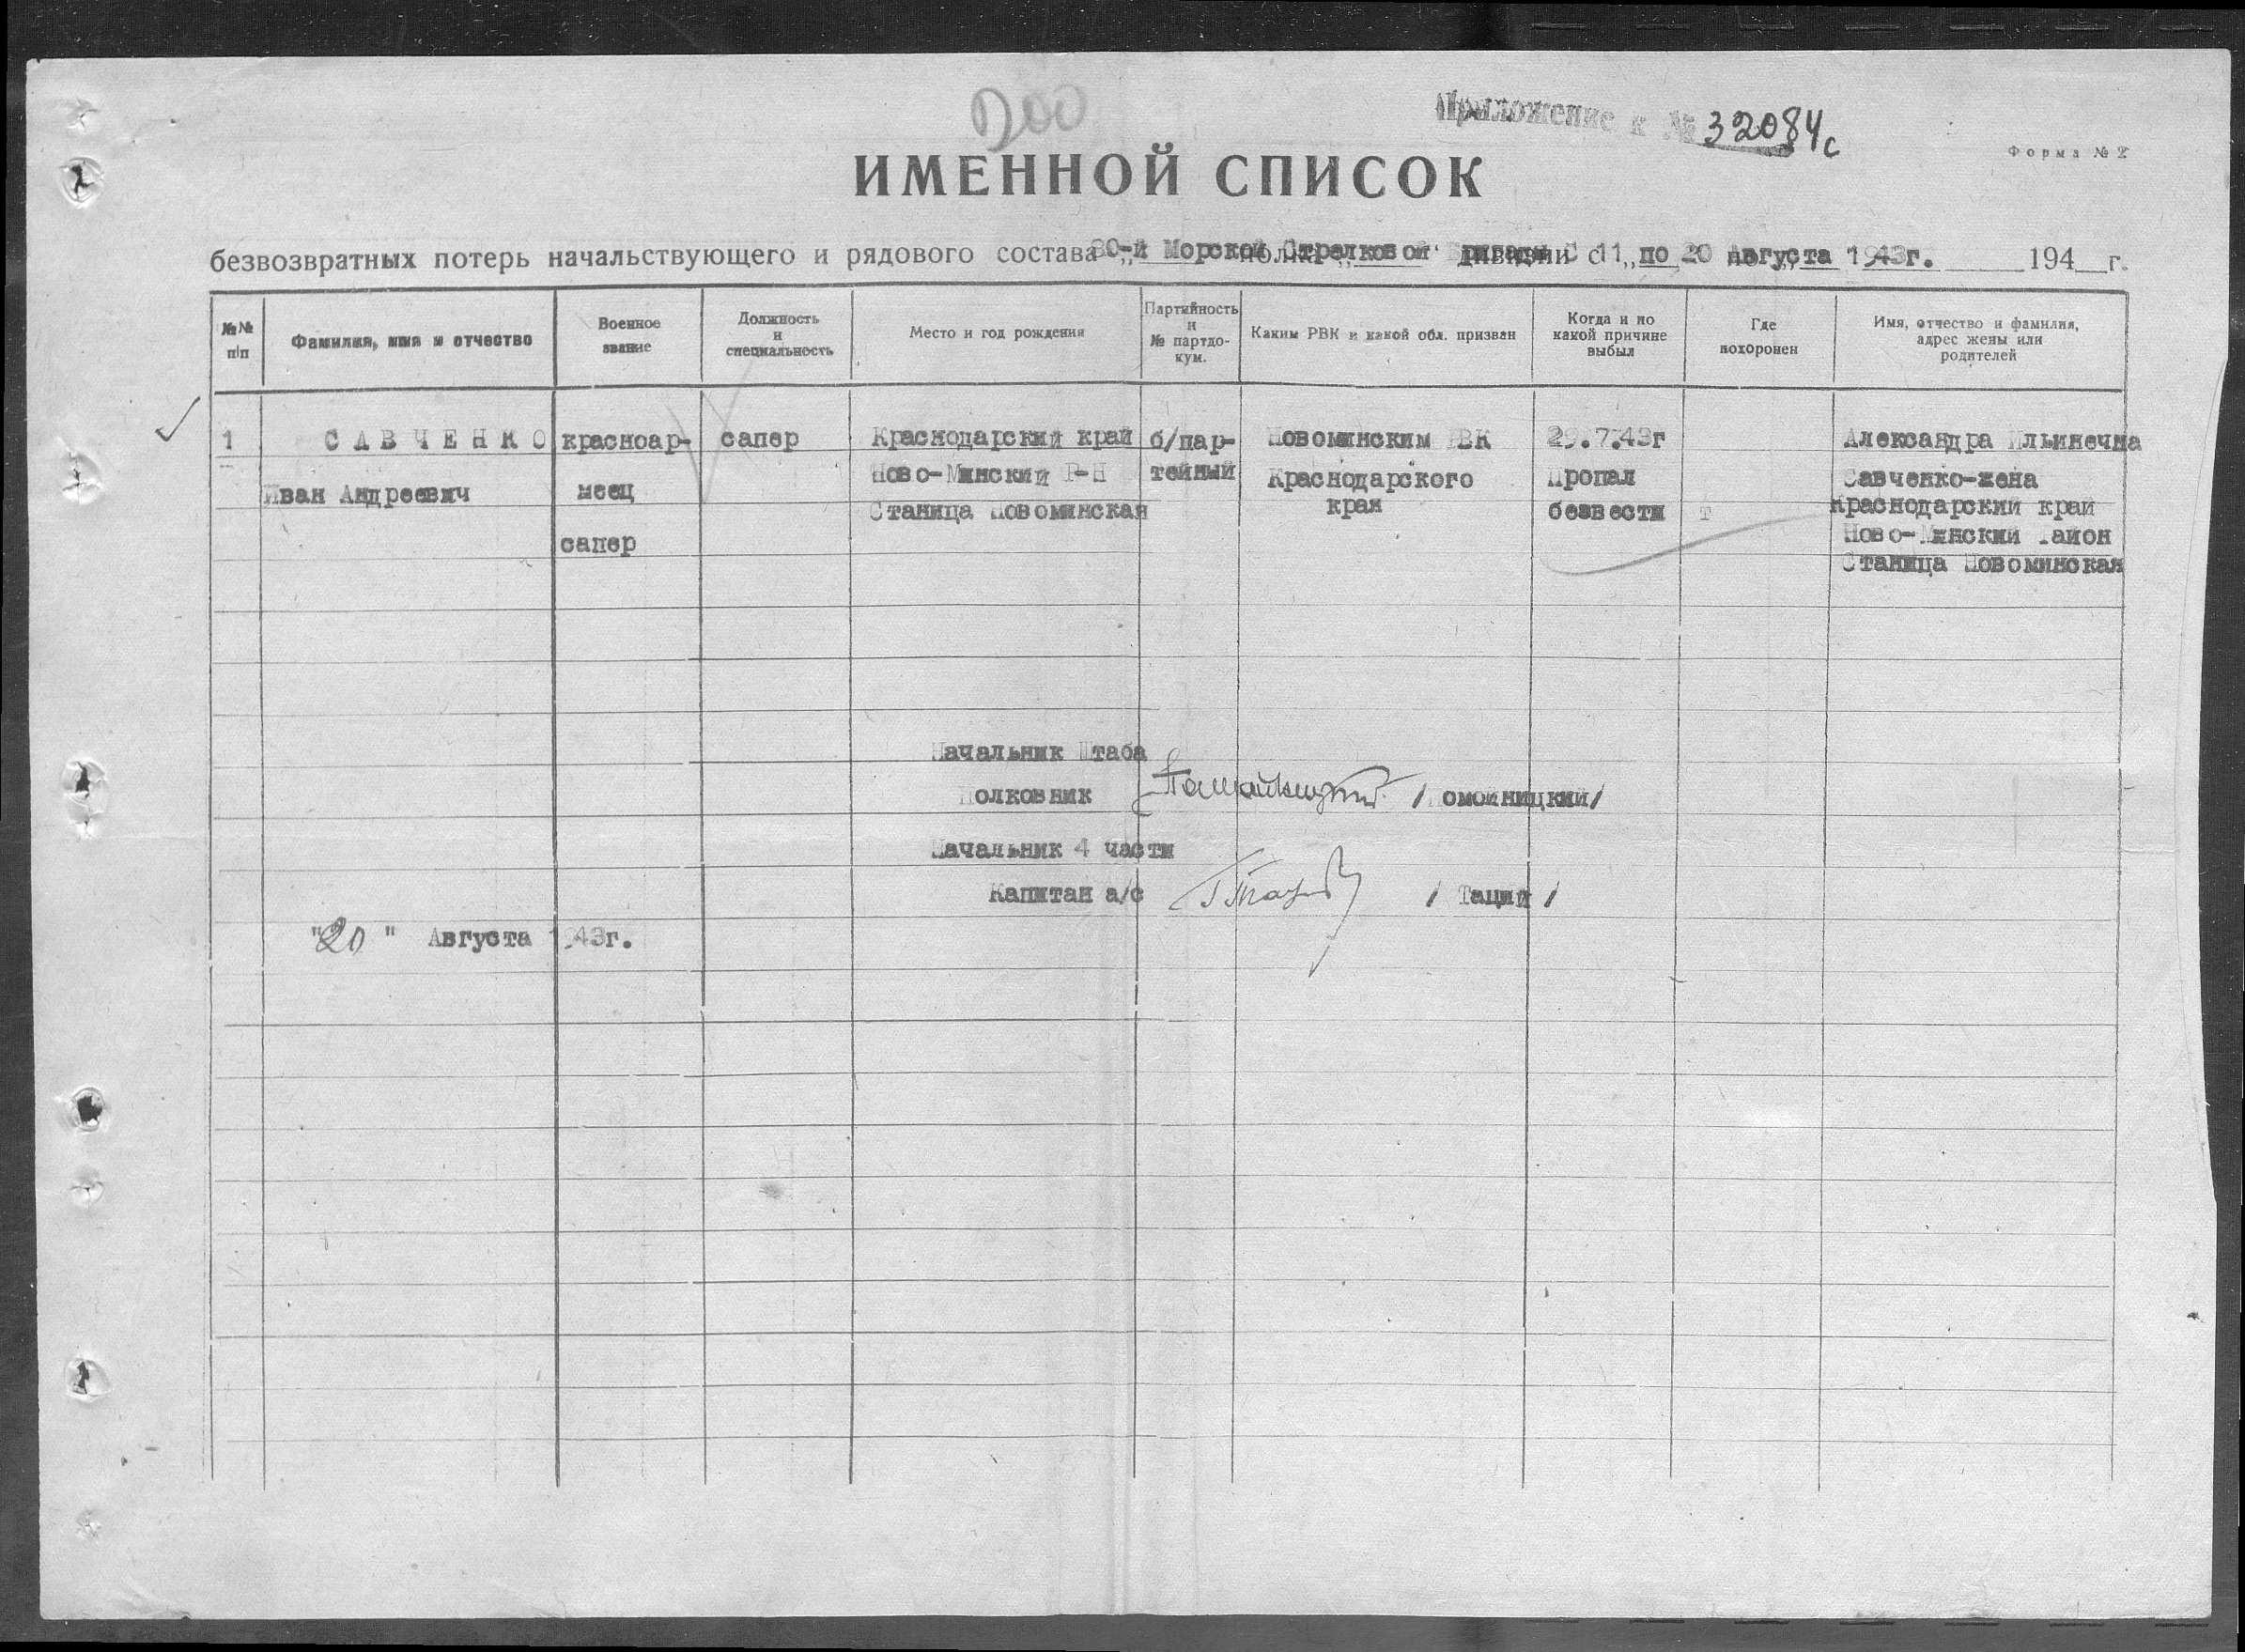 Приложение к № 32084с
Форма № 2
ИМЕННОЙ СПИСОК
безвозвратных потерь начальствующего и рядового состава 80-й Морской Стрелковой Бригады С 11 по 20 Августа 1943г. 194 г.
№№ п/п
Фамилия, имя и отчество
Военное звание
Должность и специальность
Место и год рождения
Партийность и № партдо-кум.
Каким РВК и какой обл. призван
Когда и по какой причине выбыл
Где похоронен
Имя, отчество и фамилия, адрес жены или родителей
1
САВЧЕНКО
Иван Андреевич
красноар-
меец
сапер
сапер
Краснодарский край
Ново-Минский Р-Н
Станица Новоминская
б/пар-
тейный
Новоминским РВК
Краснодарского
края
29.7.43г
Пропал
безвести
Александра Ильинечна
Савченко-жена
Краснодарский край
Ново-Минский район
Станица Новоминская
Начальник Штаба
Полковник /Помойницкий/
Начальник 4 части
Капитан а/с / Таций /
"20" Августа 1943г.